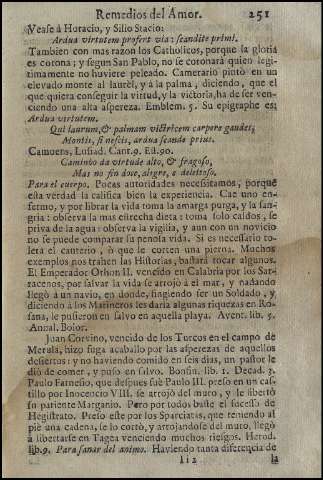 Remedios del Amor. 251
Vease à Horacio, y Silio Stacio:
Ardua virtutem profert via: scandite primi.
Tambien con mas razon los Catholicos, porque la gloria
es corona; y segun San Pablo, no se coronarà quien legi-
timamente no huviere peleado. Camerario pintò en un
elevado monte al laurèl, y à la palma, diciendo, que el
que quiera conseguir la virtud, y la victoria, ha de ser ven-
ciendo una alta aspereza. Emblem. 5. Su epigraphe es:
Ardua virtutem.
Qui laurum, & palmam victricem carpere gaudes;
Montis, si nescis, ardua scande prius.
Camoens, Lusiad. Cant. 9. Est. 90.
Caminho da virtude alto, & fragoso,
Mas no fin doce, alegre, e deleitoso.
Para el cuerpo. Pocas autoridades necessitamos, porque
esta verdad la califica bien la experiencia. Cae uno en-
fermo, y por librar la vida toma la amarga purga, y la san-
gria: observa la mas estrecha dieta: toma solo caldos, se
priva de la agua: observa la vigilia, y aun con un novicio
no se puede comparar su penosa vida. Si es necessario to-
lera el cauterio, ò que le corten una pierna. Muchos
exemplos nos trahen las Historias, bastarà tocar algunos.
El Emperador Othon II. vencido en Calabria por los Sar-
racenos, por salvar la vida se arrojò à el mar, y nadando
llegò à un navio, en donde, fingiendo ser un Soldado, y
diciendo à los Marineros les daria algunas riquezas en Ro-
sana, le pusieron en salvo en aquella playa. Avent. lib. 5.
Annal. Boior.
Juan Corvino, vencido de los Turcos en el campo de
Merula, hizo fuga acaballo por las asperezas de aquellos
desiertos: y no haviendo comido en seis dias, un pastor le
diò de comer, y puso en salvo. Bonfin. lib. 1. Decad. 3.
Paulo Farnesio, que despues fuè Paulo III. preso en un cas-
tillo por Inocencio VIII. se arrojò del muro, y le libertò
su pariente Marganio. Pero por todos baste el sucesso de
Hegistrato. Preso este por los Sparciatas, que teniendo al
piè una cadena, se lo cortò, y arrojandose del muro, llegò
à libertarse en Tagea venciendo muchos riesgos. Herod.
lib. 9. Para sanar del animo. Haviendo tanta diferencia de
Ii2 la